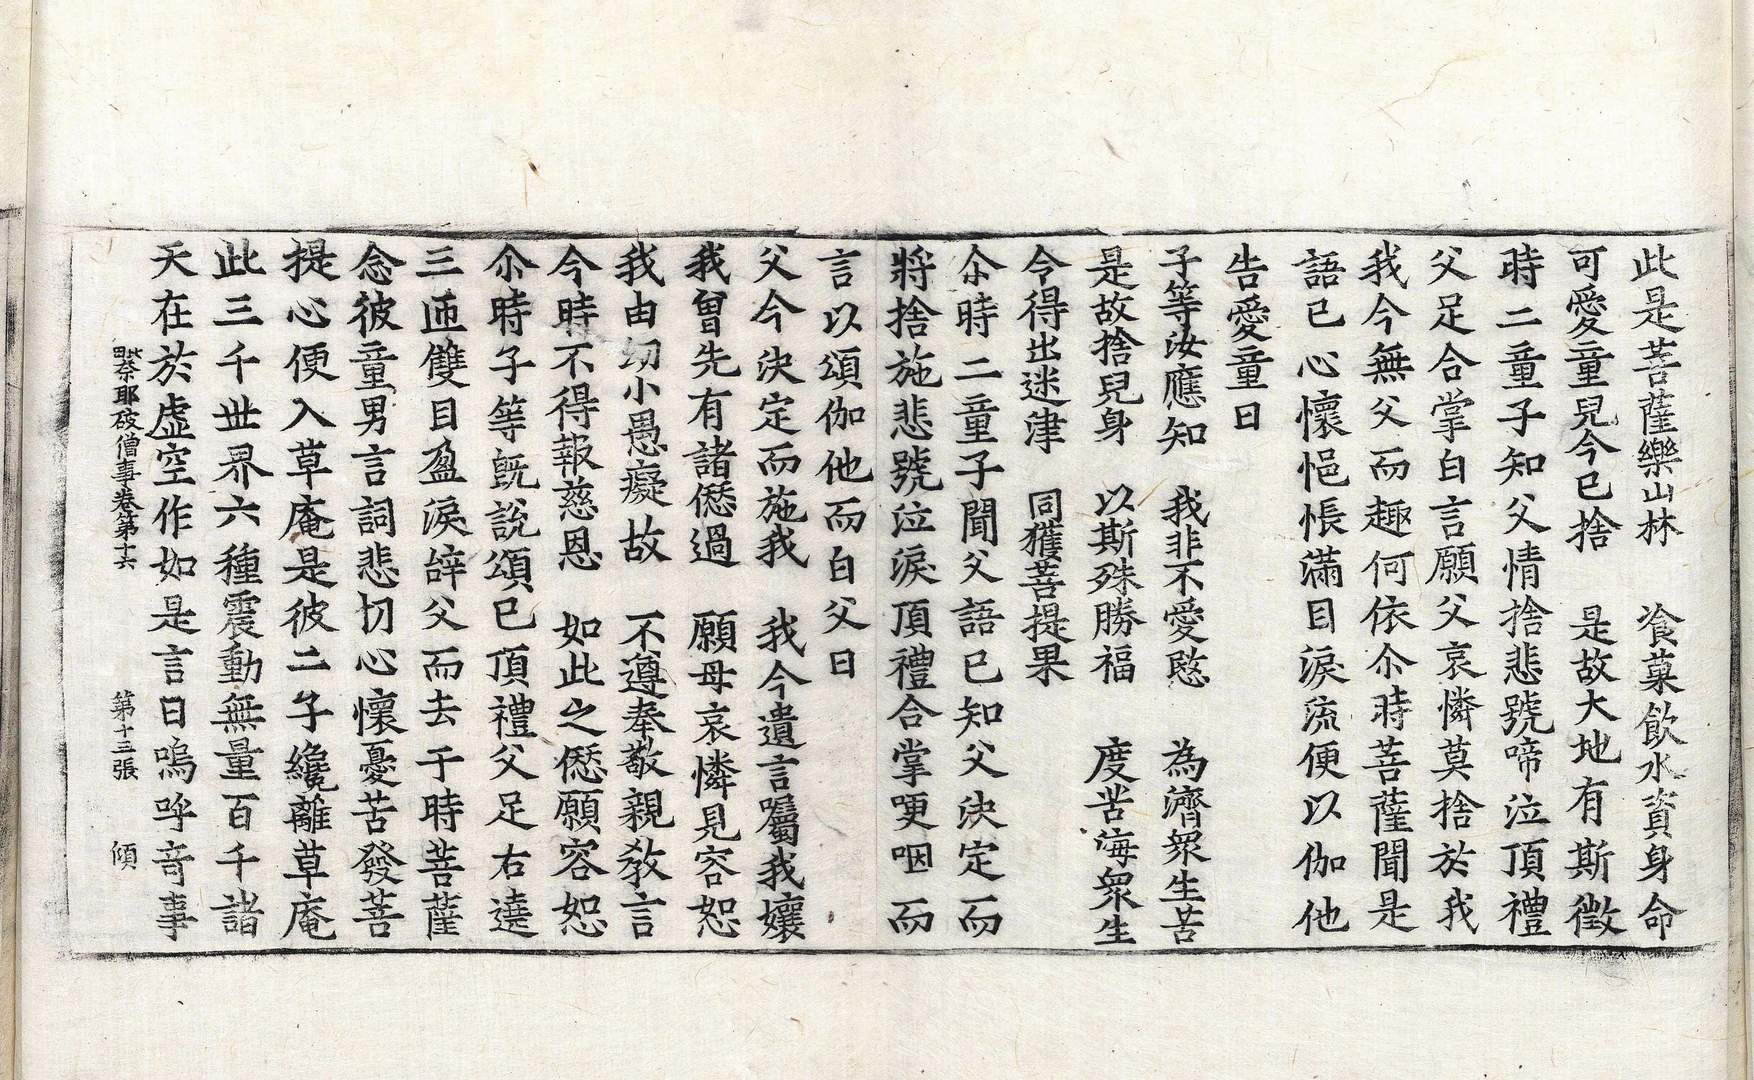 此是菩薩樂山林　飡菓飮水資身命
可愛童兒今已捨　是故大地有斯徵
時二童子知父情捨悲號啼泣頂禮
父足合掌白言願父哀憐莫捨於我
我今無父而趣何依尒時菩薩聞是
語已心懷悒悵滿目淚流便以伽他
告愛童曰
子等汝應知　我非不愛愍　為濟衆生苦
是故捨兒身　以斯殊勝福　度苦海衆生
令得出迷津　同獲菩提果
尒時二童子聞父語已知父決定而
將捨施悲號泣淚頂禮合掌哽咽而
言以頌伽他而白父曰
父今決定而施我　我今遺言囑我孃
我曾先有諸𠎝過　願母哀憐見容恕
我由幼小愚癡故　不遵奉敬親教言
今時不得報慈恩　如此之𠎝願容恕
尒時子等旣說頌已頂禮父足右遶
三匝雙目盈淚辝父而去于時菩薩
念彼童男言詞悲切心懷憂苦發菩
提心便入草庵是彼二子纔離草庵
此三千世界六種震動無量百千諸
天在於虛空作如是言曰嗚呼奇事
奈耶破僧事卷第十六　第十三張　傾